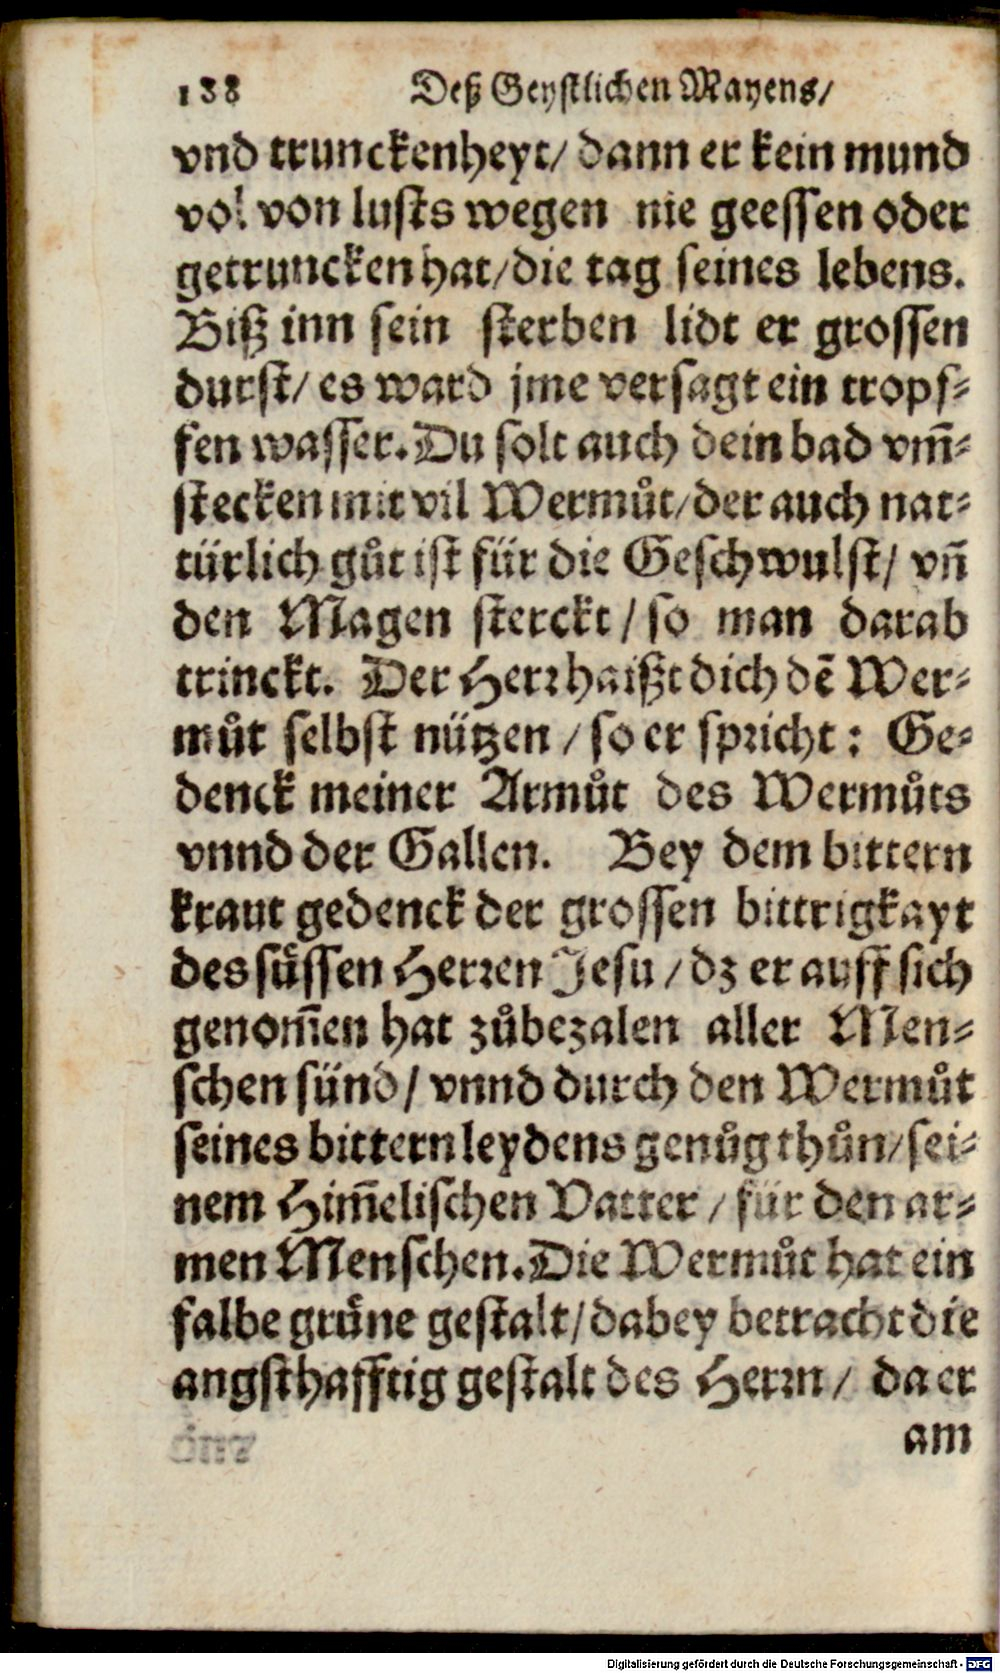 138 Deß Geystlichen Mayens/
vnd trunckenheyt/ dann er kein mund
vol von lusts wegen nie geessen oder
getruncken hat/ die tag seines lebens.
Biß inn sein sterben lidt er grossen
durst/ es ward jme versagt ein tropf-
fen wasser. Du solt auch dein bad vm̃-
stecken mit vil Wermůt/ der auch nat-
türlich gůt ist für die Geschwulst/ vñ
den Magen sterckt / so man darab
trinckt. Der Herr haißt dich dẽ Wer-
můt selbst nützen / so er spricht: Ge-
denck meiner Armůt des Wermůts
vnnd der Gallen. Bey dem bittern
kraut gedenck der grossen bittrigkayt
des süssen Herren Jesu / dz er auff sich
genom̃en hat zůbezalen aller Men-
schen sünd / vnnd durch den Wermůt
seines bittern leydens genůg thůn/ sei-
nem Him̃elischen Vatter / für den ar-
men Menschen. Die Wermůt hat ein
falbe grüne gestalt/ dabey betracht die
angsthafftig gestalt des Herrn / da er
am
Digitalisierung gefördert durch die Deutsche Forschungsgemeinschaft - DFG